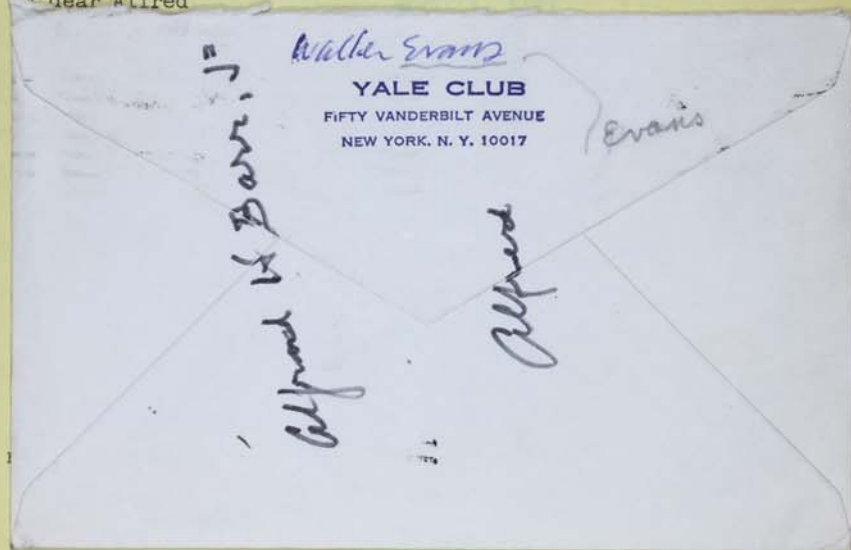 dear Alfred
Walker Evans
YALE CLUB
FIFTY VANDERBILT AVENUE
NEW YORK, N. Y. 10017
Evans
Alfred H Barr, Jr
Alfred